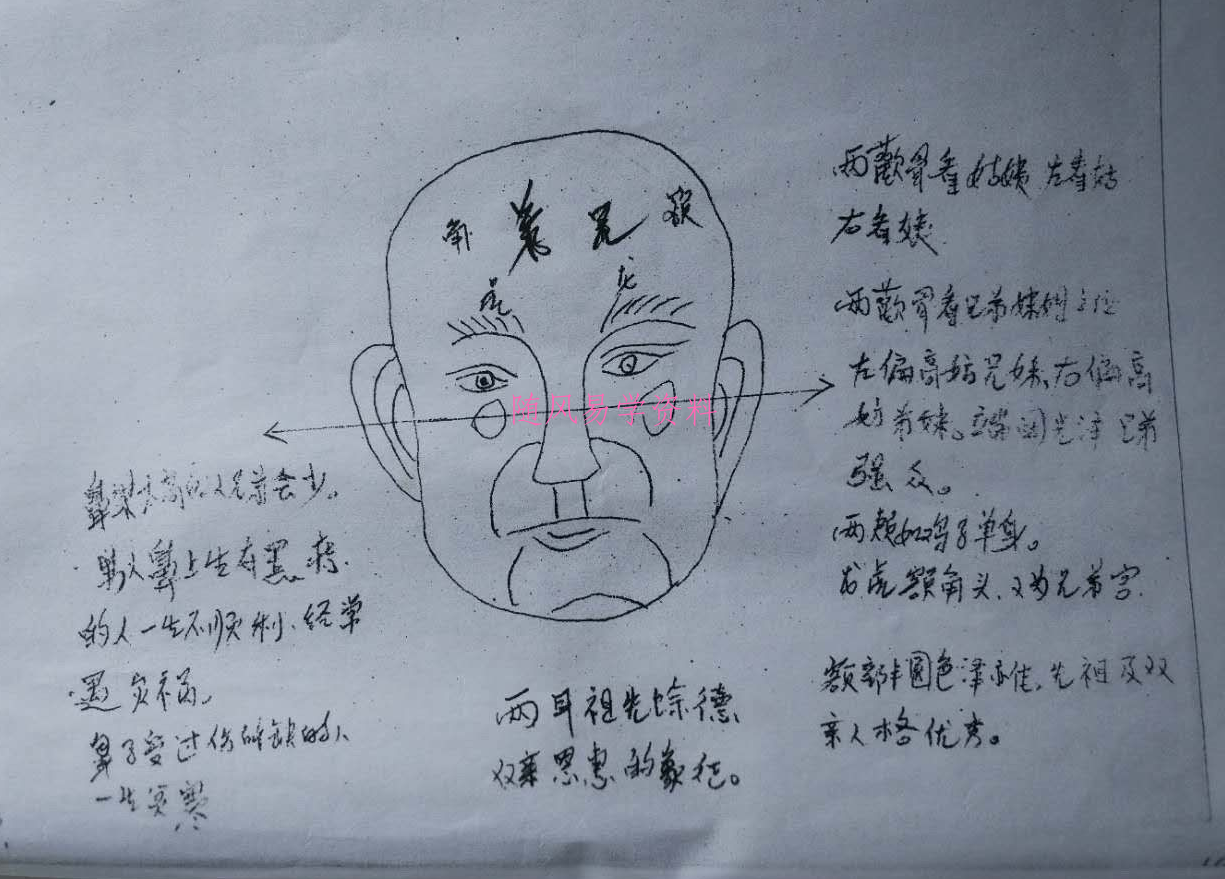 两颧骨看姑姨 左看姑
右看姨
两颧骨看兄弟
左偏高妨兄妹、右偏高
妨弟妹。光泽兄弟
强众。
两颊如鸡子单身。
龙虎额角头、又为兄弟宫.
额部丰圆色泽亦佳、先祖及双
亲人格优秀。
角 兄 额
虎 龙
随风易学资料
鼻梁高的人兄弟会少。
鼻上生有黑痣
的人一生不顺利、经常
遇灾祸。
鼻子受过伤的人
一生
两耳祖先余德
双亲恩惠的象征。